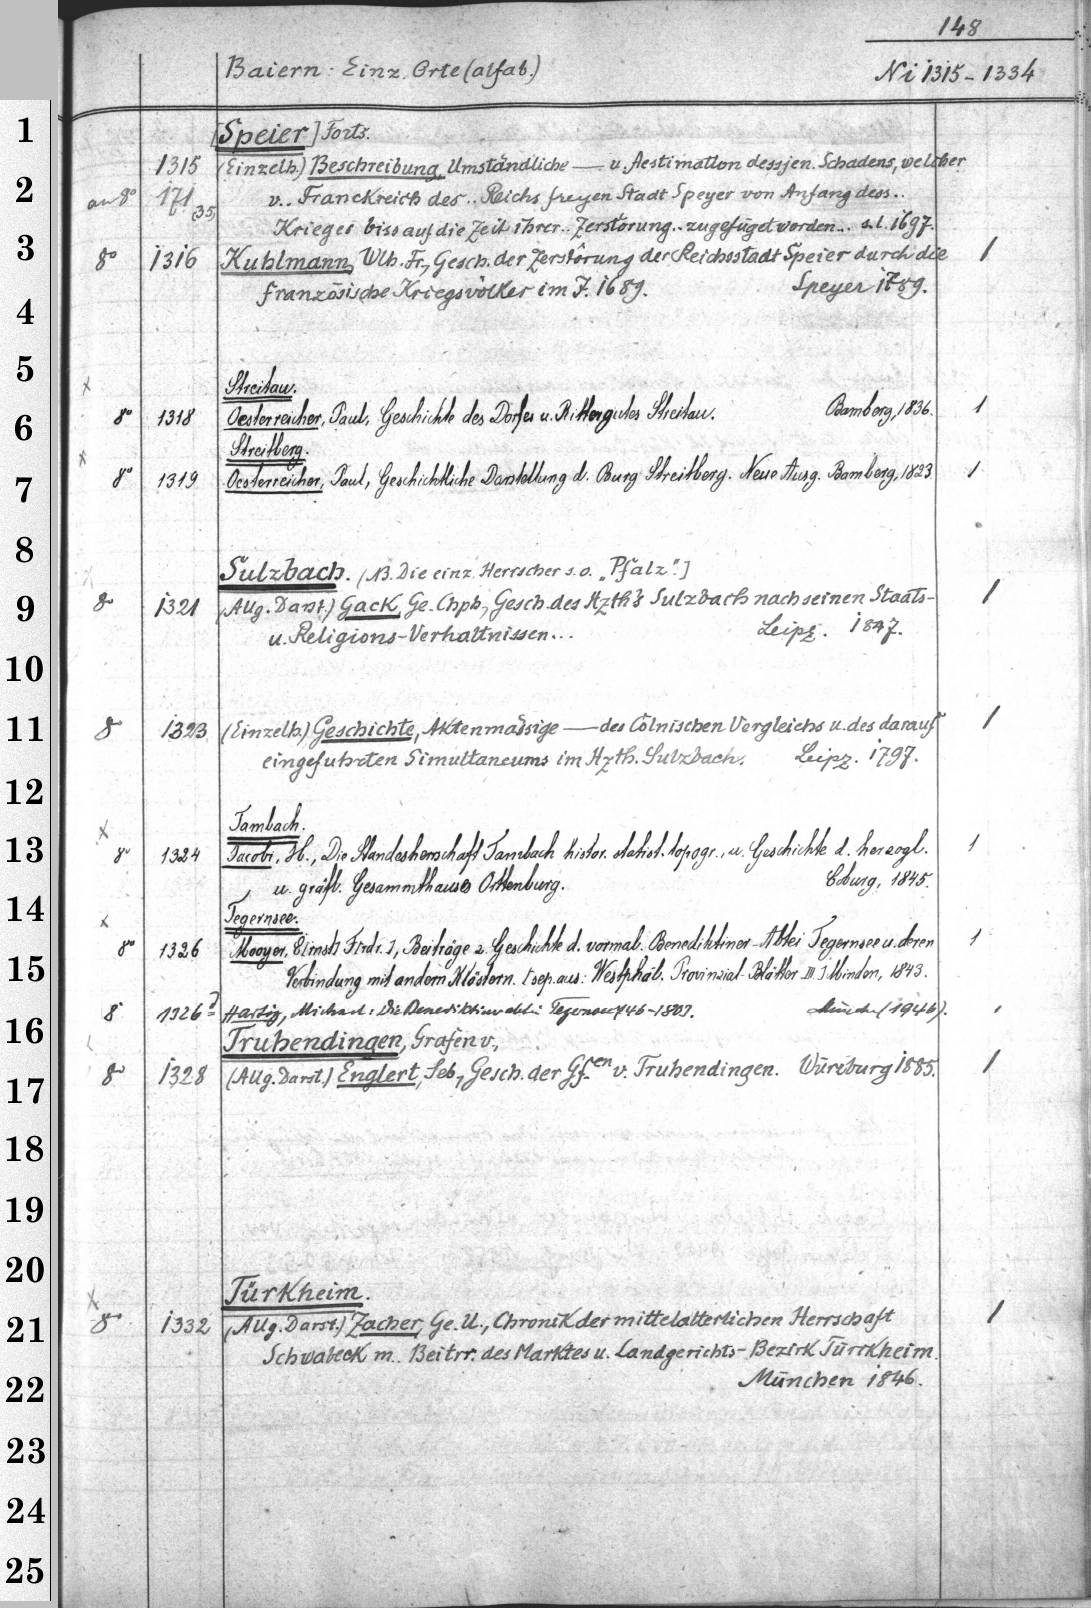 148
Baiern: Einz. Orte (alfab.) Ni 1315-1334
1 [Speier] Forts.
1315 (Einzelh.) Beschreibung, Umständliche — u. Aestimation dessjen. Schadens, welcher
2 an 8° 171 (35) v.. Franckreich der.. Reichs freyen Stadt Speyer von Anfang dess..
Krieges biss auf die Zeit ihrer.. Zerstörung.. zugefüget worden... s.l. 1697.
3 8° 1316 Kuhlmann, Wlh. Fr., Gesch. der Zerstörung der Reichsstadt Speier durch die 1
französische Kriegsvölker im J. 1689. Speyer 1789.
4
5
x Streitau.
6 8° 1318 Oesterreicher, Paul, Geschichte des Dorfes u. Rittergutes Streitau. Bamberg, 1836. 1
x Streitberg.
7 8° 1319 Oesterreicher, Paul, Geschichtliche Darstellung d. Burg Streitberg. Neue Ausg. Bamberg, 1823 1
8
Sulzbach. (NB. Die einz. Herrscher s.o. „Pfalz“.]
9 8° 1321 (Allg. Darst.) Gack, Ge. Chph., Gesch. des Hzth's Sulzbach nach seinen Staats- 1
u. Religions-Verhältnissen... Leipz. 1847.
10
11 8° 1323 (Einzelh.) Geschichte, Aktenmässige — des Cölnischen Vergleichs u. des darauf 1
eingeführten Simultaneums im Hzth. Sulzbach. Leipz. 1797.
12
x Tambach.
13 8° 1324 Jacobi, H., Die Standesherrschaft Tambach histor. statist. topogr., u. Geschichte d. herzogl. 1
u. gräfl. Gesammthauses Orttenburg. Coburg, 1845.
14 Tegernsee.
x 8° 1326 Mooyer, E[rnst] F[rdr.], Beiträge z. Geschichte d. vormal. Benediktiner-Abtei Tegernsee u. deren 1
15 Verbindung mit andern Klöstern. [sep. aus: Westphäl. Provinzial-Blätter III.] Minden, 1843.
8° 1326a Hartig, Michael: Die Benediktinerabtei Tegernsee 746-1803. Münch. (1946).
16 Truhendingen, Grafen v.,
17 8° 1328 (Allg. Darst.) Englert, Seb., Gesch. der Gf.en v. Truhendingen. Würzburg 1885. 1
18
19
20
Türkheim.
21 x 8° 1332 (Allg. Darst.) Zacher, Ge. U., Chronik der mittelalterlichen Herrschaft 1
Schwabeck m. Beitrr. des Marktes u. Landgerichts-Bezirk Türrkheim.
22 München 1846.
23
24
25